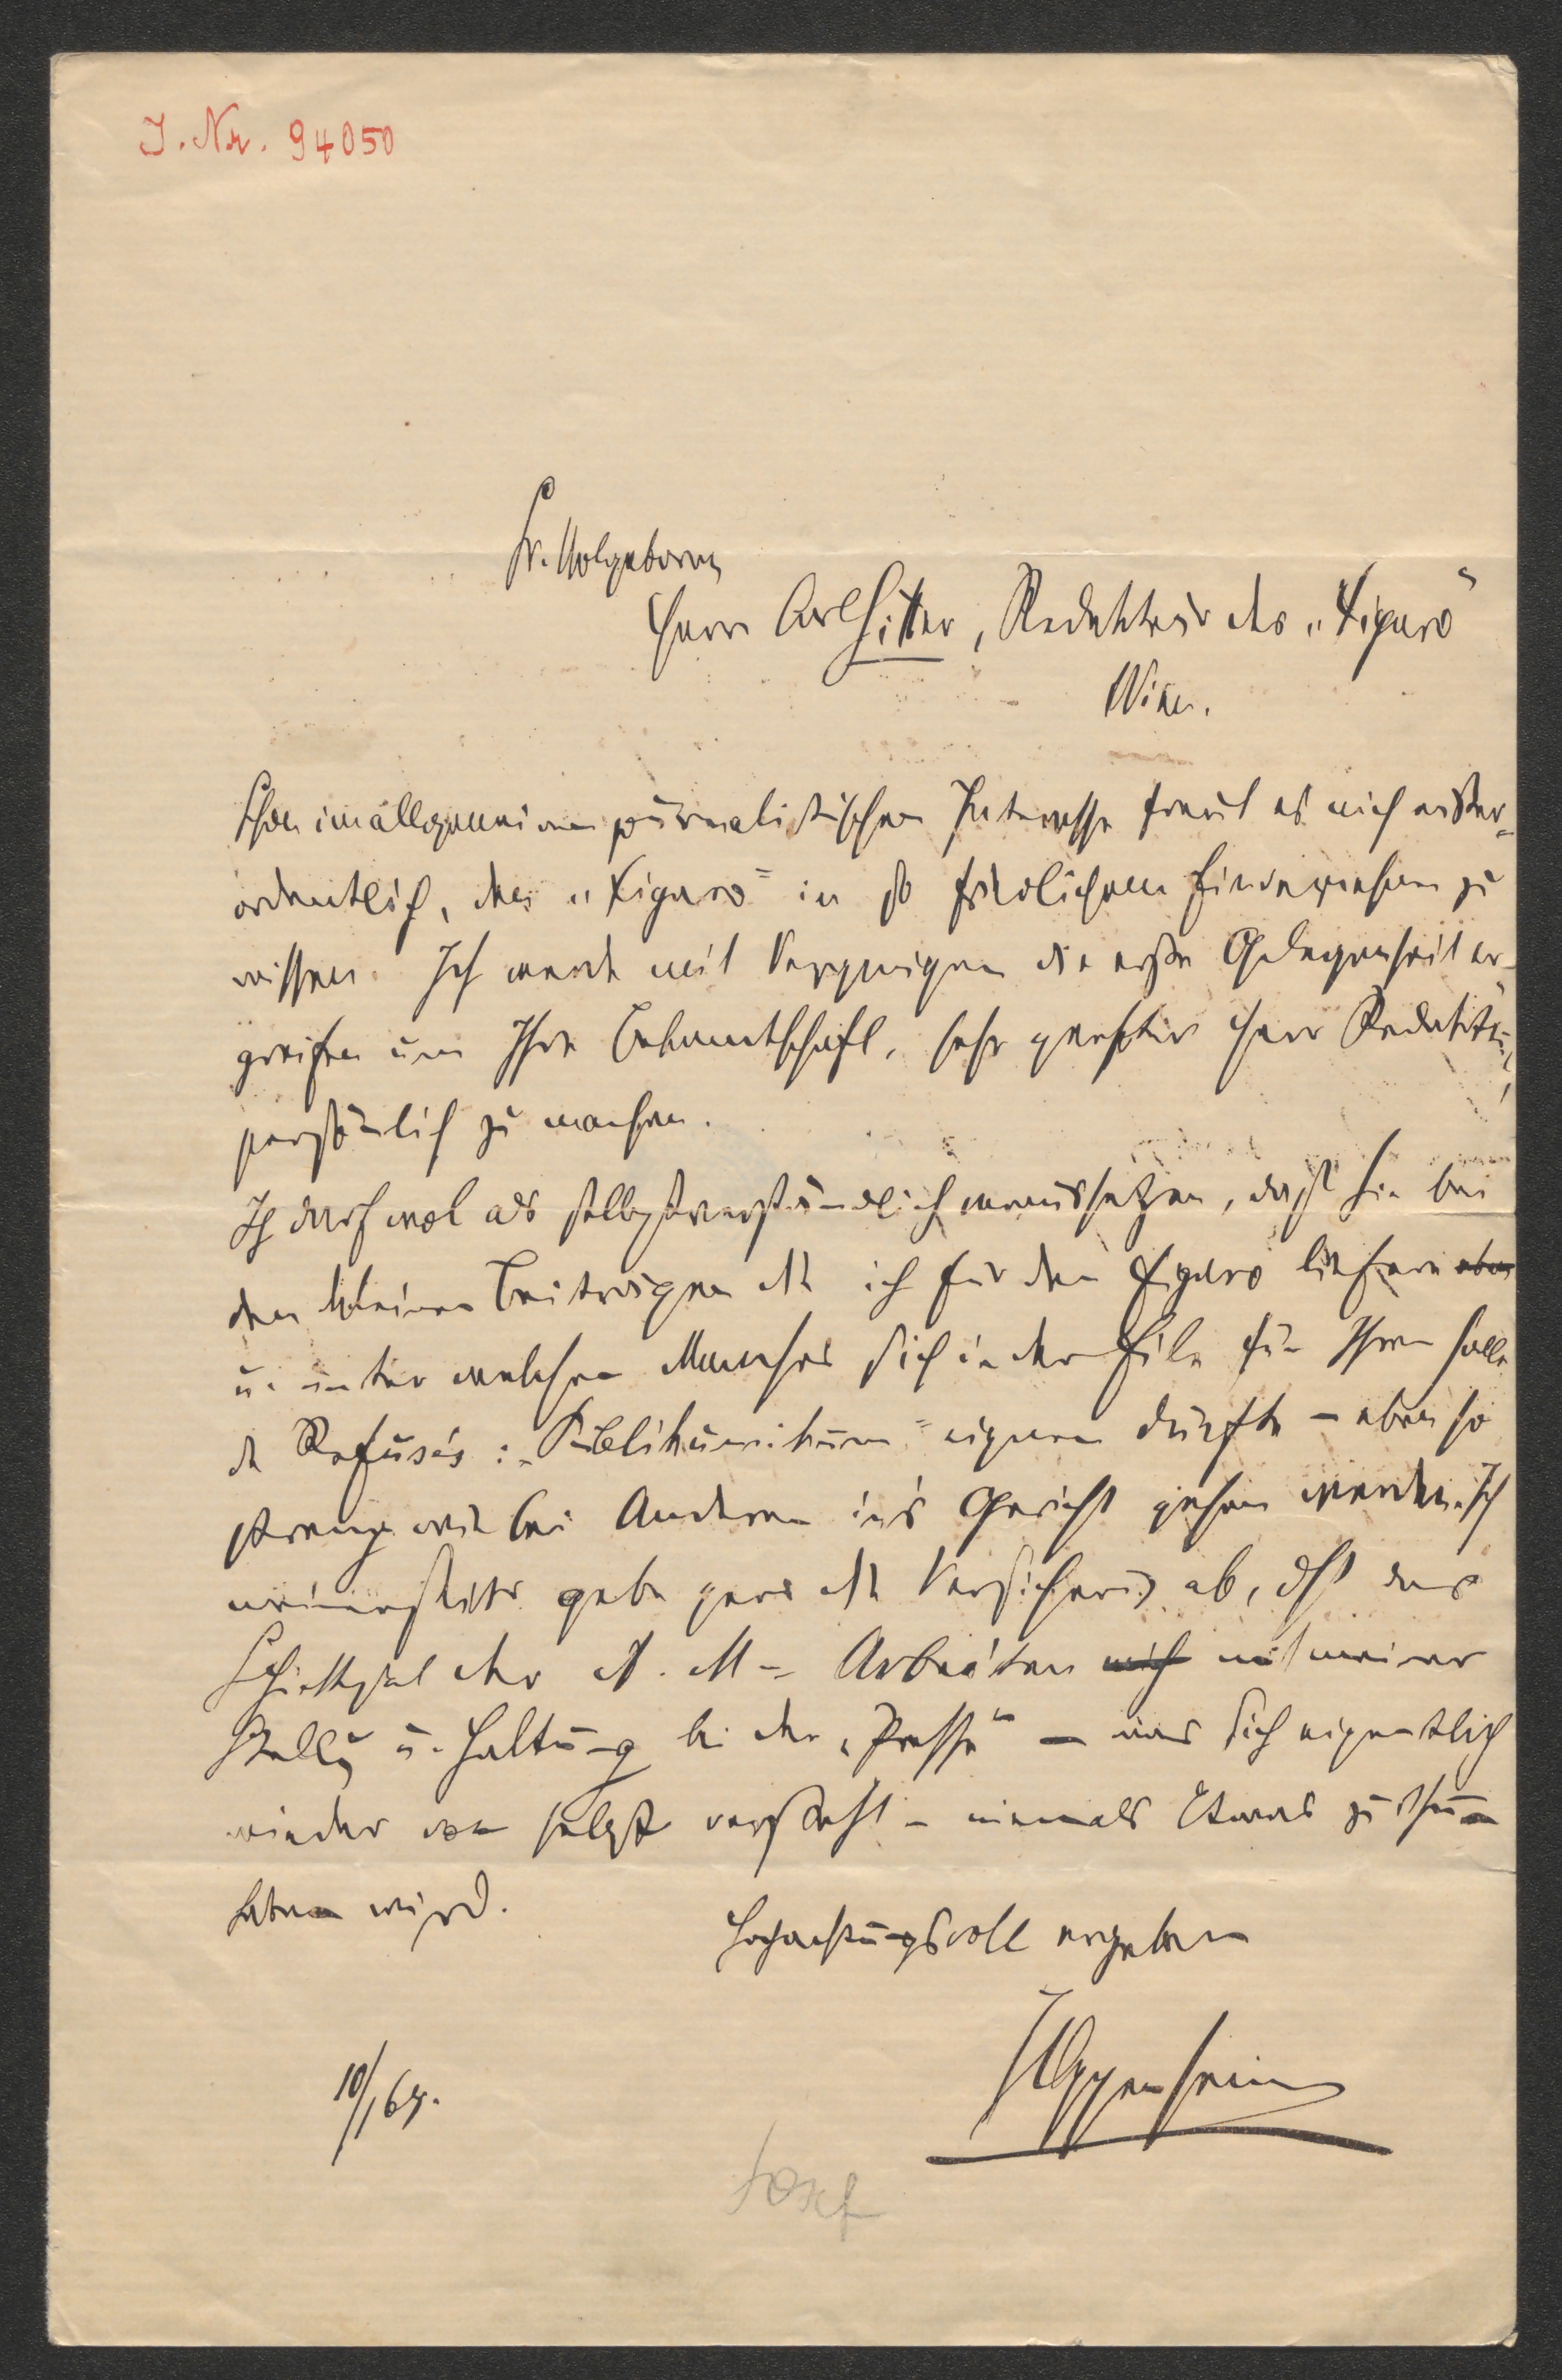 J. Nr. 94050
Sr. Wolgeboren
Herrn Carl Sitter, Redakteur des „Figaro“
Wien.
Schon im allgemeinen journalistischen Interesse freut es mich außer-
ordentlich, den „Figaro“ in so friedlichem Einvernehmen zu
wissen. Ich werde mit Vergnügen die erste Gelegenheit er-
greifen um Ihre Bekanntschaft, sehr geehrter Herr Redakteur,
persönlich zu machen.
Ich darf wol als selbstverständlich voraussetzen, daß Sie bei
den kleinen Beiträgen die ich für den Figaro liefere eben
u. unter welchen Manches sich in der Eile für Ihren Salle
de Refusés: „Publikumikum“ eignen dürfte – eben so
streng wie bei Anderen in's Gericht gehen werden. Ich
meinerseits gebe gern die Versicherung ab, daß das
Schicksal der Arbeiten mich mit meiner
Stellung u. Haltung bei der „Presse“ – was sich eigentlich
wieder von selbst versteht – niemals Etwas zu thun
haben wird.
Hochachtungsvoll ergeben
JOppenheim
10/1 64.
Josef